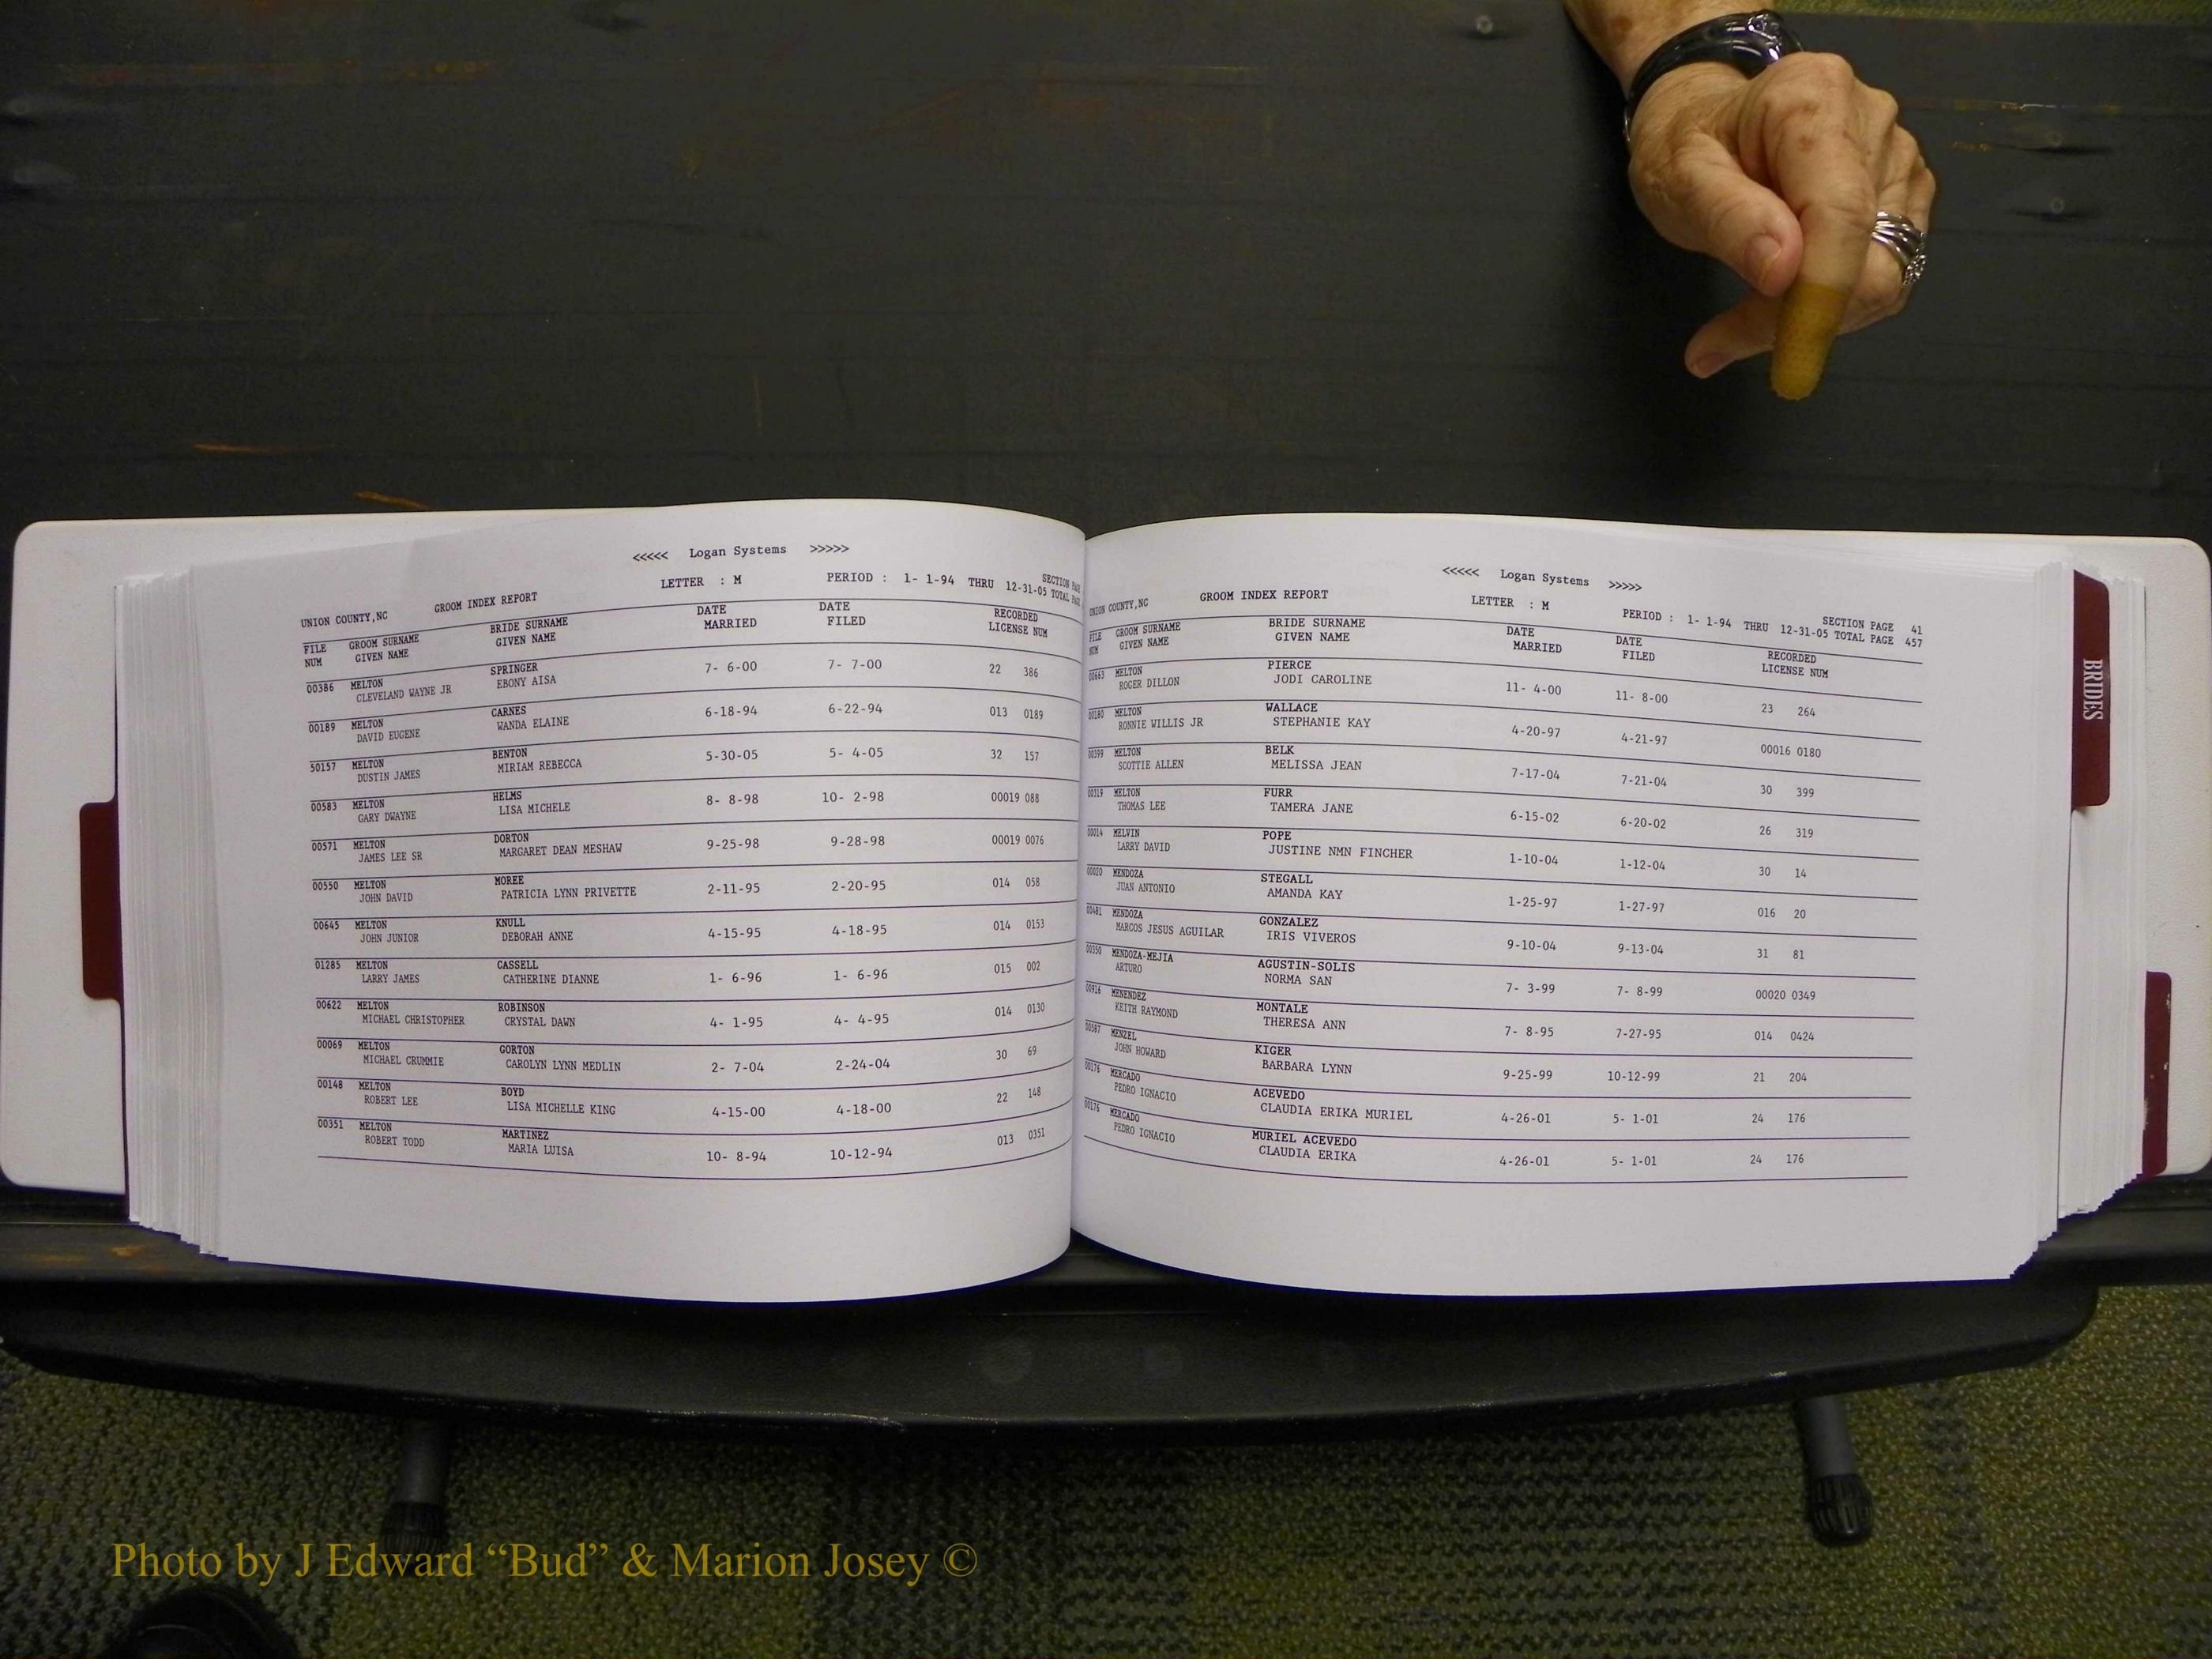 <<<<< Logan Systems >>>>>
LETTER : M PERIOD : 1- 1-94 THRU 12-31-05 SECTION PAGE
TOTAL PAGE
UNION COUNTY,NC GROOM INDEX REPORT
FILE GROOM SURNAME BRIDE SURNAME DATE DATE RECORDED
NUM GIVEN NAME GIVEN NAME MARRIED FILED LICENSE NUM
00386 MELTON SPRINGER 7- 6-00 7- 7-00 22 386
CLEVELAND WAYNE JR EBONY AISA
00189 MELTON CARNES 6-18-94 6-22-94 013 0189
DAVID EUGENE WANDA ELAINE
50157 MELTON BENTON 5-30-05 5- 4-05 32 157
DUSTIN JAMES MIRIAM REBECCA
00583 MELTON HELMS 8- 8-98 10- 2-98 00019 088
GARY DWAYNE LISA MICHELE
00571 MELTON DORTON 9-25-98 9-28-98 00019 0076
JAMES LEE SR MARGARET DEAN MESHAW
00550 MELTON MOREE 2-11-95 2-20-95 014 058
JOHN DAVID PATRICIA LYNN PRIVETTE
00645 MELTON KNULL 4-15-95 4-18-95 014 0153
JOHN JUNIOR DEBORAH ANNE
01285 MELTON CASSELL 1- 6-96 1- 6-96 015 002
LARRY JAMES CATHERINE DIANNE
00622 MELTON ROBINSON 4- 1-95 4- 4-95 014 0130
MICHAEL CHRISTOPHER CRYSTAL DAWN
00069 MELTON GORTON 2- 7-04 2-24-04 30 69
MICHAEL CRUMMIE CAROLYN LYNN MEDLIN
00148 MELTON BOYD 4-15-00 4-18-00 22 148
ROBERT LEE LISA MICHELLE KING
00351 MELTON MARTINEZ 10- 8-94 10-12-94 013 0351
ROBERT TODD MARIA LUISA
<<<<< Logan Systems >>>>>
UNION COUNTY,NC GROOM INDEX REPORT LETTER : M PERIOD : 1- 1-94 THRU 12-31-05 SECTION PAGE 41
TOTAL PAGE 457
FILE GROOM SURNAME BRIDE SURNAME DATE DATE RECORDED
NUM GIVEN NAME GIVEN NAME MARRIED FILED LICENSE NUM
00663 MELTON PIERCE 11- 4-00 11- 8-00 23 264
ROGER DILLON JODI CAROLINE
00180 MELTON WALLACE 4-20-97 4-21-97 00016 0180
RONNIE WILLIS JR STEPHANIE KAY
00399 MELTON BELK 7-17-04 7-21-04 30 399
SCOTTIE ALLEN MELISSA JEAN
00319 MELTON FURR 6-15-02 6-20-02 26 319
THOMAS LEE TAMERA JANE
00014 MELVIN POPE 1-10-04 1-12-04 30 14
LARRY DAVID JUSTINE NMN FINCHER
00020 MENDOZA STEGALL 1-25-97 1-27-97 016 20
JUAN ANTONIO AMANDA KAY
00481 MENDOZA GONZALEZ 9-10-04 9-13-04 31 81
MARCOS JESUS AGUILAR IRIS VIVEROS
00350 MENDOZA-MEJIA AGUSTIN-SOLIS 7- 3-99 7- 8-99 00020 0349
ARTURO NORMA SAN
00916 MENENDEZ MONTALE 7- 8-95 7-27-95 014 0424
KEITH RAYMOND THERESA ANN
00587 MENZEL KIGER 9-25-99 10-12-99 21 204
JOHN HOWARD BARBARA LYNN
00176 MERCADO ACEVEDO 4-26-01 5- 1-01 24 176
PEDRO IGNACIO CLAUDIA ERIKA MURIEL
00176 MERCADO MURIEL ACEVEDO 4-26-01 5- 1-01 24 176
PEDRO IGNACIO CLAUDIA ERIKA
BRIDES
Photo by J Edward “Bud” & Marion Josey ©